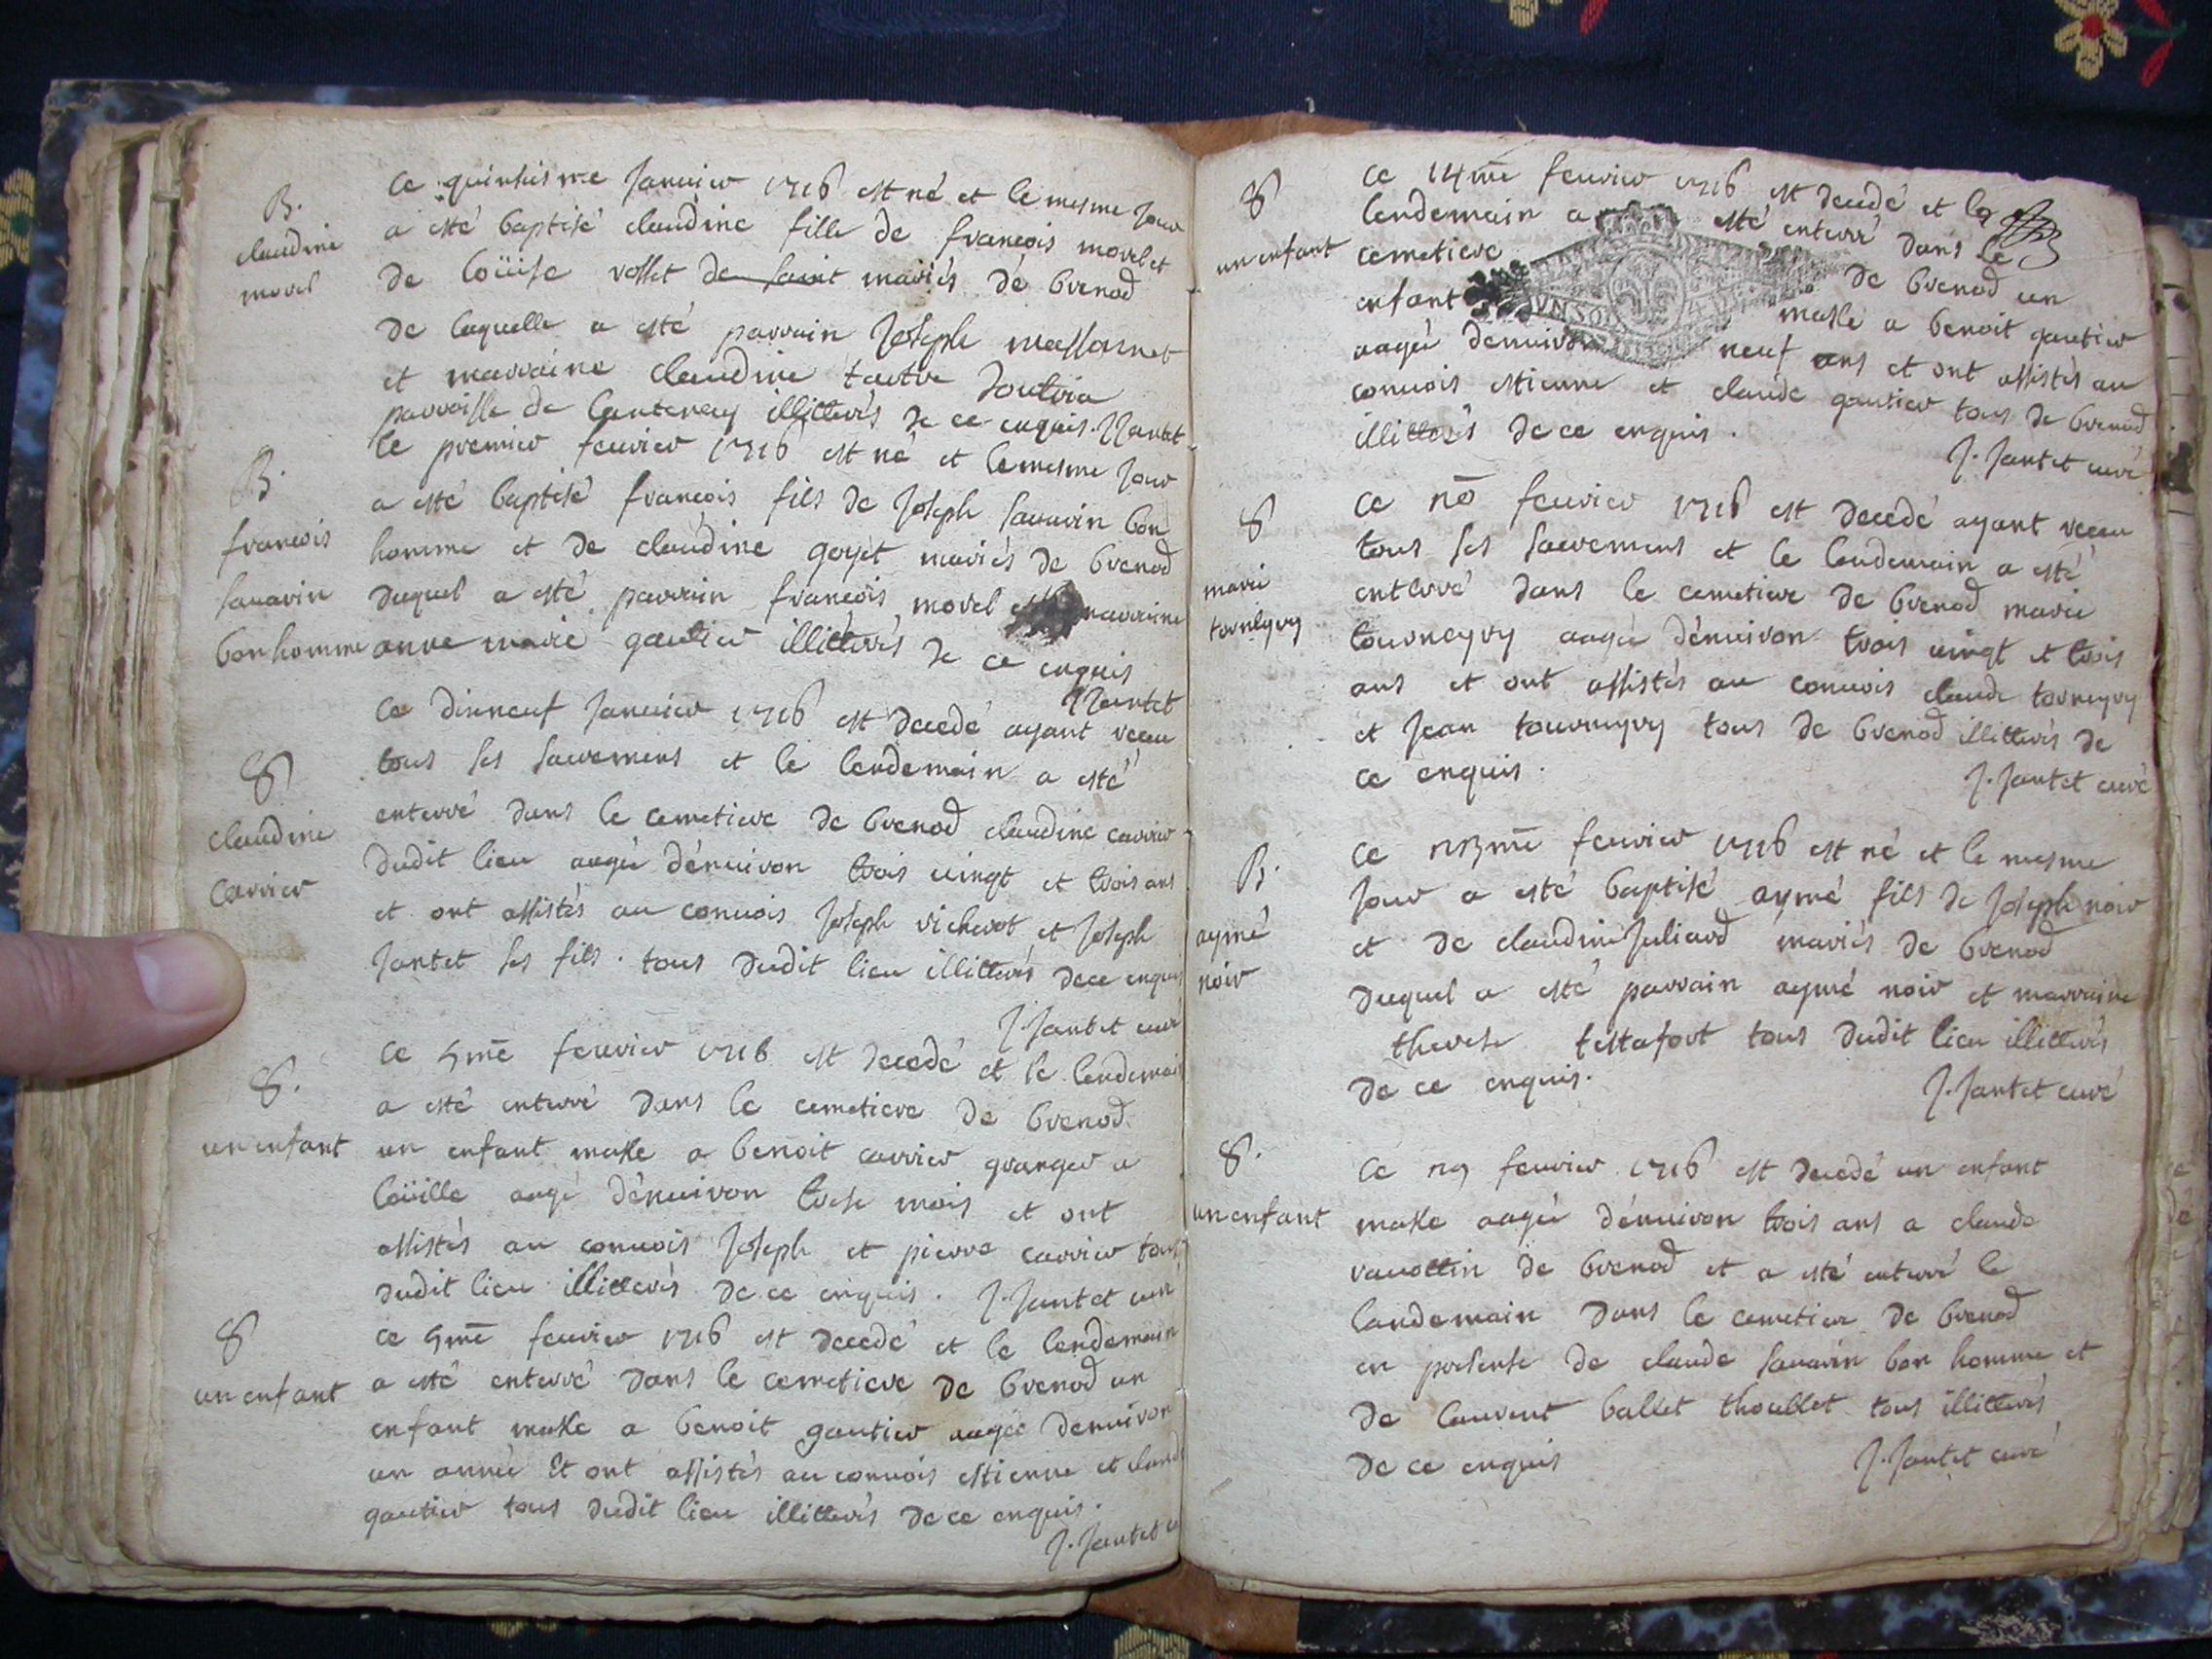 B.
claudine
morel
Ce quinsiesme Januier 1716 est né et le mesme Jour
a esté baptisé claudine fille de francois morel et
de Loüise rosset de saint mariés de brenod
de laquelle a esté parrain Joseph massonnet
et marraine claudine
parroisse de Lantenay illitterés de ce enquis. J Jantet
B.
francois
sauarin
bonhomme
Ce premier feurier 1716 est né et le mesme Jour
a esté baptisé francois fils de Joseph sauarin bon
homme et de claudine goyet mariés de brenod
duquel a esté parrain francois morel marraine
anne marie gautier illitterés de ce enquis
J Jantet
8
claudine
carrier
Ce dixneuf Januier 1716 est decedé ayant receu
tous ses sacremens et le lendemain a esté
enterré dans le cemetiere de brenod claudine carrier
dudit lieu aagée dénuiron trois uingt et trois ans
et ont assistés au conuois Joseph vicherot et Joseph
Jantet ses fils. tous dudit lieu illitterés de ce enquis
J. Jantet curé
8.
un enfant
Ce 5me feurier 1716 est decedé et le lendemain
a esté enterré dans le cemetiere de brenod
un enfant masle a benoit carrier granger a
Loüille aagé dénuiron trese mois et ont
assistés au conuois Joseph et pierre carrier tous
dudit lieu illitterés de ce enquis. J. Jantet curé
8
un enfant
Ce 5me feurier 1716 est decedé et le lendemain
a esté enterré dans le cemetiere de brenod un
enfant masle a benoit gautier aagée denuiron
un année Et ont assistés au conuois estienne et claude
gautier tous dudit lieu illitterés de ce enquis.
J. Jantet
8
un enfant
Ce 14me feurier 1716 est decedé et le
lendemain a esté enterré dans le
cemetiere de brenod un
enfant masle a benoit gautier
aagée denuiron neuf ans et ont assistés au
conuois estienne et claude gautier tous de brenod
illitterés de ce enquis.
J. Jantet curé
8
marie
torneyry
Ce feurier 1716 est decedé ayant receu
tous ses sacremens et le lendemain a esté
enterré dans le cemetiere de brenod marie
tourneyry aagée dénuiron trois uingt et trois
ans et ont assistés au conuois claude torneyry
et Jean tourneyry tous de brenod illitterés de
ce enquis.
J. Jantet curé
B.
aymé
noir
Ce feurier 1716 est né et le mesme
Jour a esté baptisé aymé fils de Joseph noir
et de claudine Juliard mariés de brenod
duquel a esté parrain aymé noir et marraine
therese testafort tous dudit lieu illitterés
de ce enquis.
J. Jantet curé
8.
un enfant
Ce feurier 1716 est decedé un enfant
masle aagée dénuiron trois ans a claude
vauottin de brenod et a esté enterré le
landemain dans le cemetiere de brenod
en presense de claude sauarin bon homme et
de laurent ballet thoullet tous illitterés
de ce enquis
J. Jantet curé